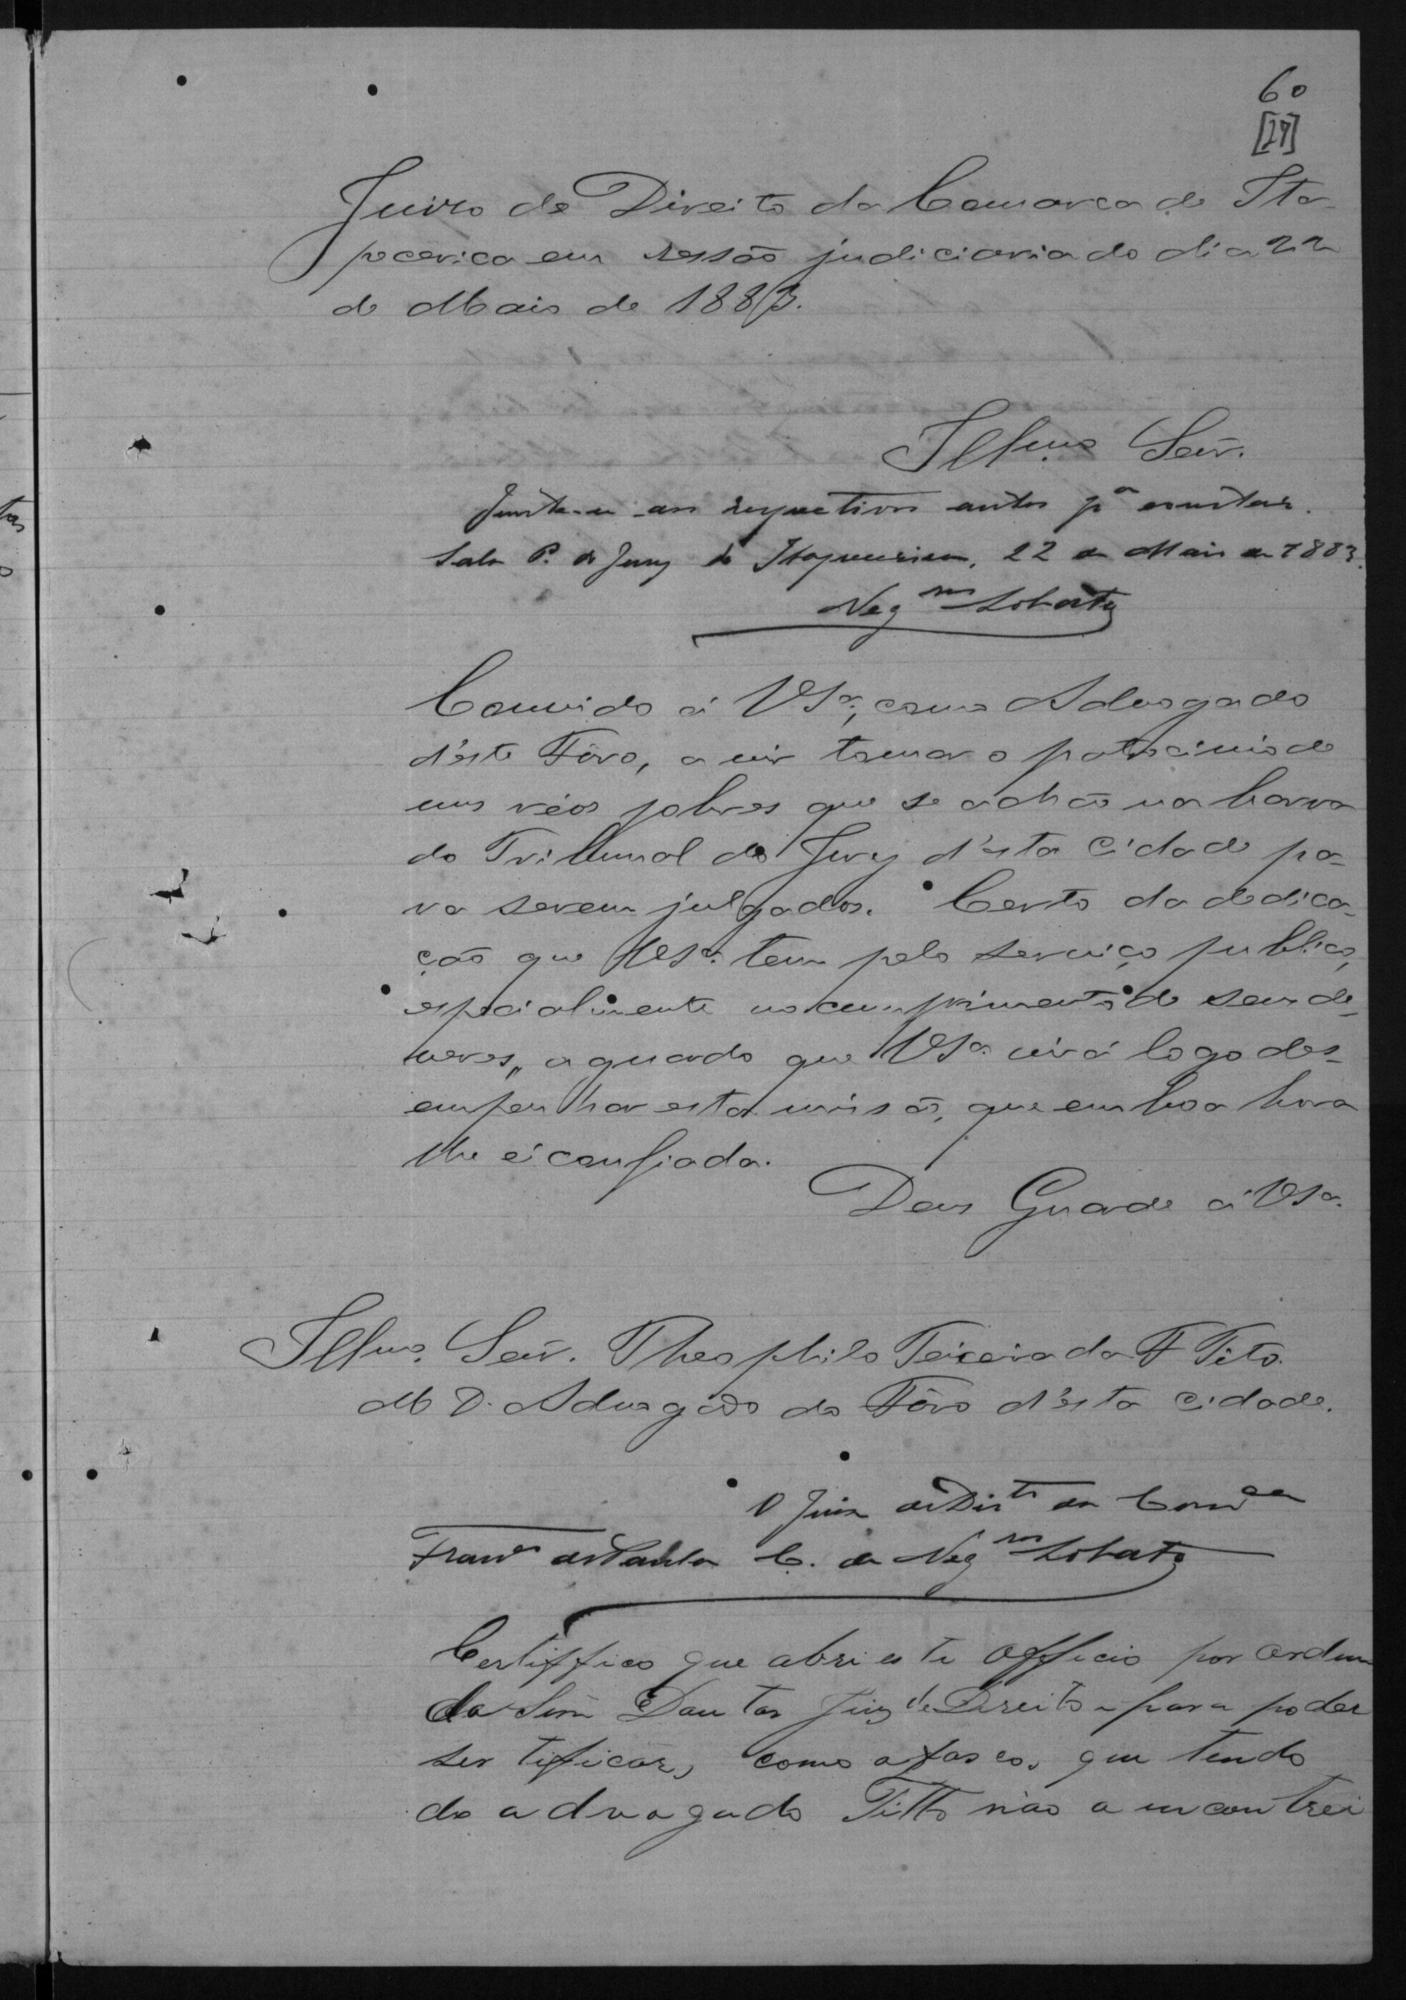 60
[27]
Juizo de Direito da Comarca de Ita-
pecerica em sessão judiciaria do dia 22
de Maio de 1883.
Illmo Señr.
Junte-se aos respectivos autos pa constar.
Sala P. do Jury de Itapecerica, 22 de Maio de 1883.
Negros Lobato
Convido á VSa, como Advogado
d'este Fôro, a vir tomar o patrocinio de
uns réos pobres que se achão na barra
do Tribunal do Jury d'esta Cidade pa-
ra serem julgados. Certo da dedica-
ção que VSa tem pelo serviço publico,
especialmente no cumprimento de seus de-
veres, aguardo que VSa virá logo des-
empenhar esta missão, que em boa hora
lhe é confiada.
Deus Guarde á VSa.
Illmo. Señr. Theophilo Teixeira da F Tito.
M D. Advogado do Fôro d'esta Cidade.
O Juiz de Dirto da Comca
Franco de Paula C. de Negros Lobato
Certiffico que abri este Officio por ordem
do Snr Doutor Juiz de Direito para poder
sertificar, como o fasso, que tendo
do advogado Titto não a encontrei